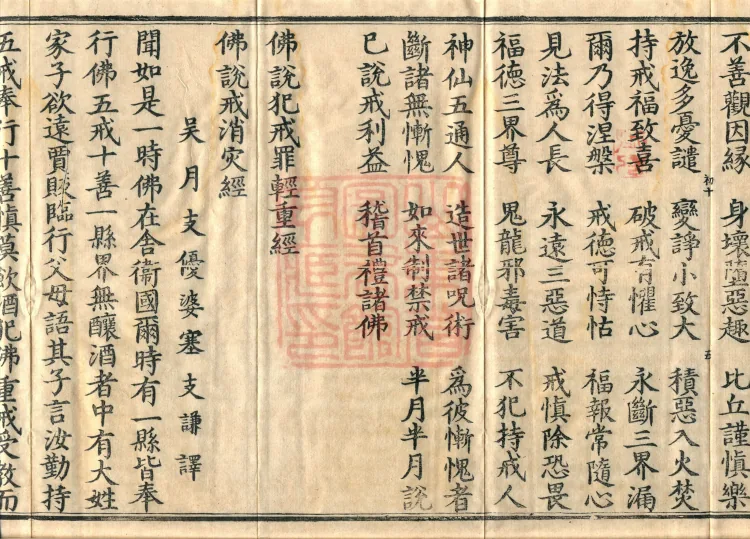 不善觀因緣 身壞墮惡趣 比丘謹慎樂
放逸多憂譴 變諍小致大 積惡入火焚
持戒福致喜 破戒有懼心 永斷三界漏
爾乃得涅槃 戒德可恃怙 福報常隨心
見法爲人長 永遠三惡道 戒慎除恐畏
福德三界尊 鬼龍邪毒害 不犯持戒人
神仙五通人 造世諸呪術 爲彼慚愧者
斷諸無慚愧 如來制禁戒 半月半月說
已說戒利益 稽首禮諸佛
佛說犯戒罪輕重經
佛說戒消灾經
吳月支優婆塞支謙譯
聞如是一時佛在舍衞國爾時有一縣皆奉
行佛五戒十善一縣界無釀酒者中有大姓
家子欲遠賈販臨行父母語其子言汝勤持
五戒奉行十善慎莫飲酒犯佛重戒受教而
初十
五